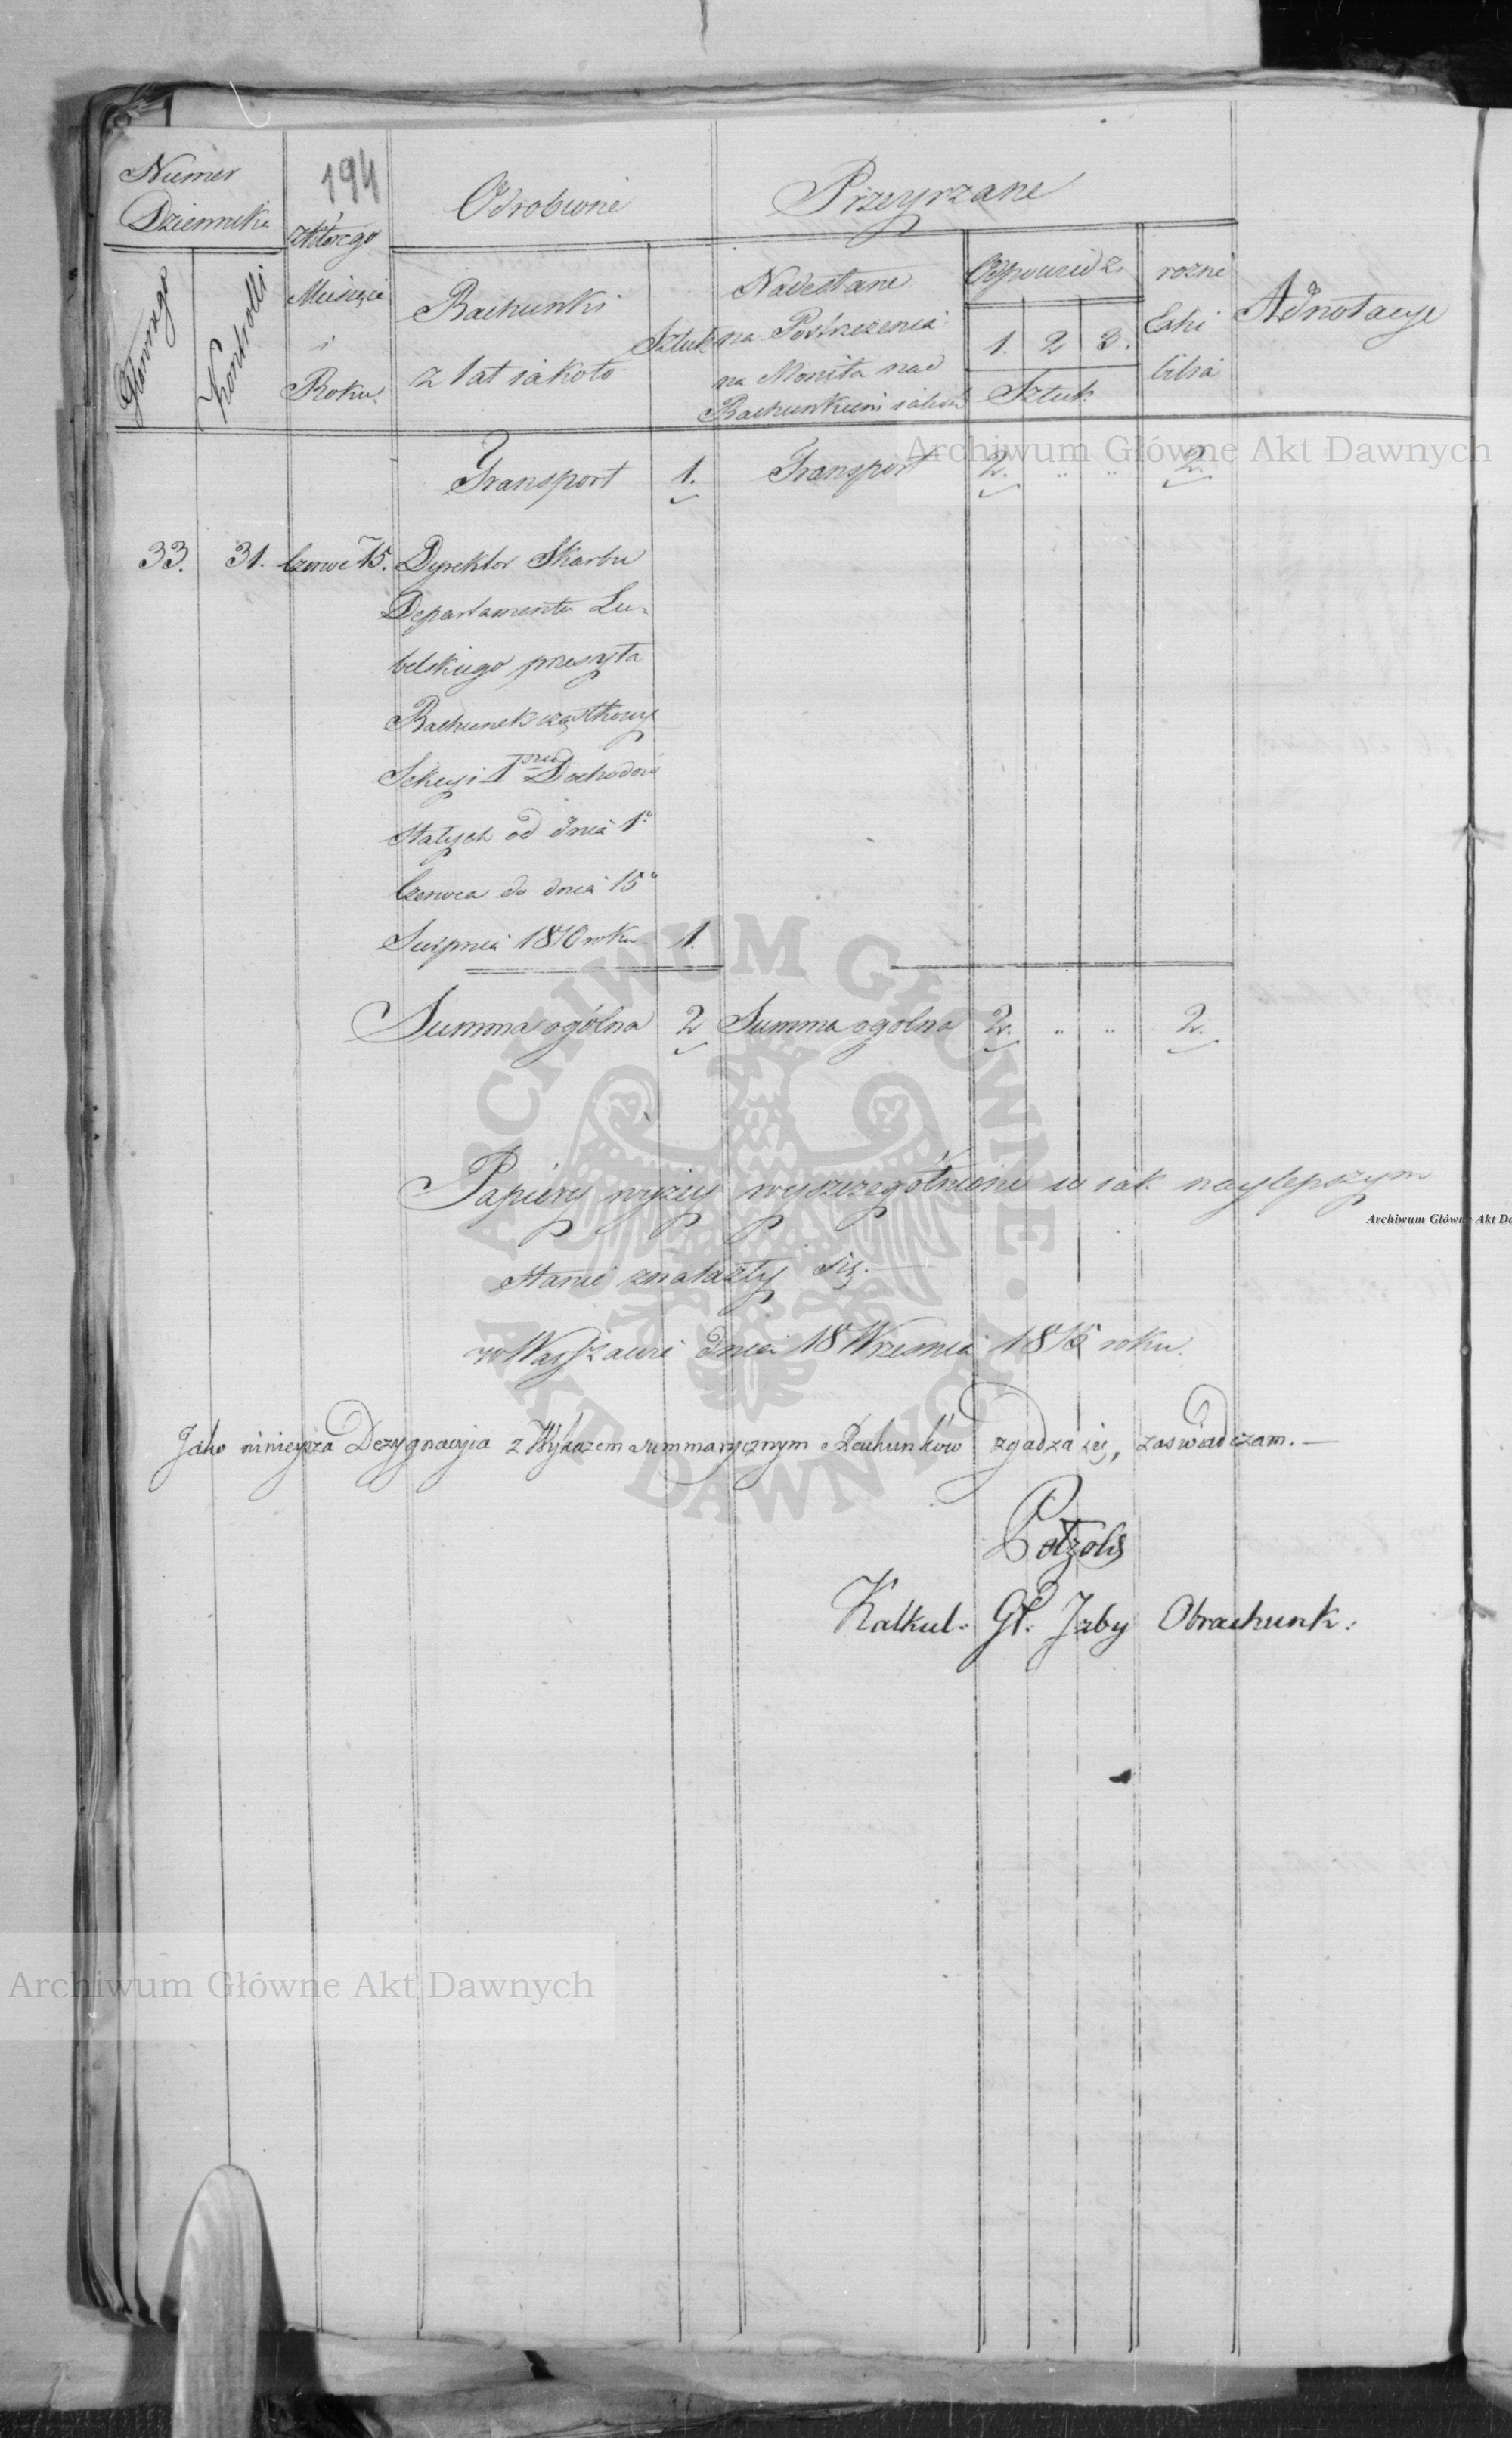 194
Numer
Dziennika
z którego
Odrobione
Przeyrzane
Głównego
Kontrolli
Miesiąca
i
Roku.
Rachunki
z lat iakoto
Sztuk
Nadesłane
na Postrzeżenia
na Monita nad
Rachunkiem
Odpowiedzi
1. 2 3.
Sztuk
rozne
Exhi
bita
Adnotacye
Transport 1. Transport 2. " " 2.
33. 31. Czerwc 15. Dyrektor Skarbu
Departamentu Lu-
belskiego przesyła
Rachunek cząstkowy
Sekcyi 1 Dochodów
Stałych od dnia 1o
Czerwca do dnia 15o
Sierpnia 1810 roku 1.
Summa ogólna 2 Summa ogólna 2. " " 2.
Papiery wyżey wyszczególnione w iak naylepszym
stanie znalazły się.
w Warszawie dnia 18 Wrzesnia 1816 roku.
Jako ninieysza Dezygnacyia z Wykazem summarycznym Rachunków zgadza się, zaswiadczam. —
Kalkul. Gł. Izby Obrachunk:
Archiwum Główne Akt Dawnych
Archiwum Główne Akt Da
ARCHIWUM GŁÓWNE AKT DAWNYCH
Archiwum Główne Akt Dawnych